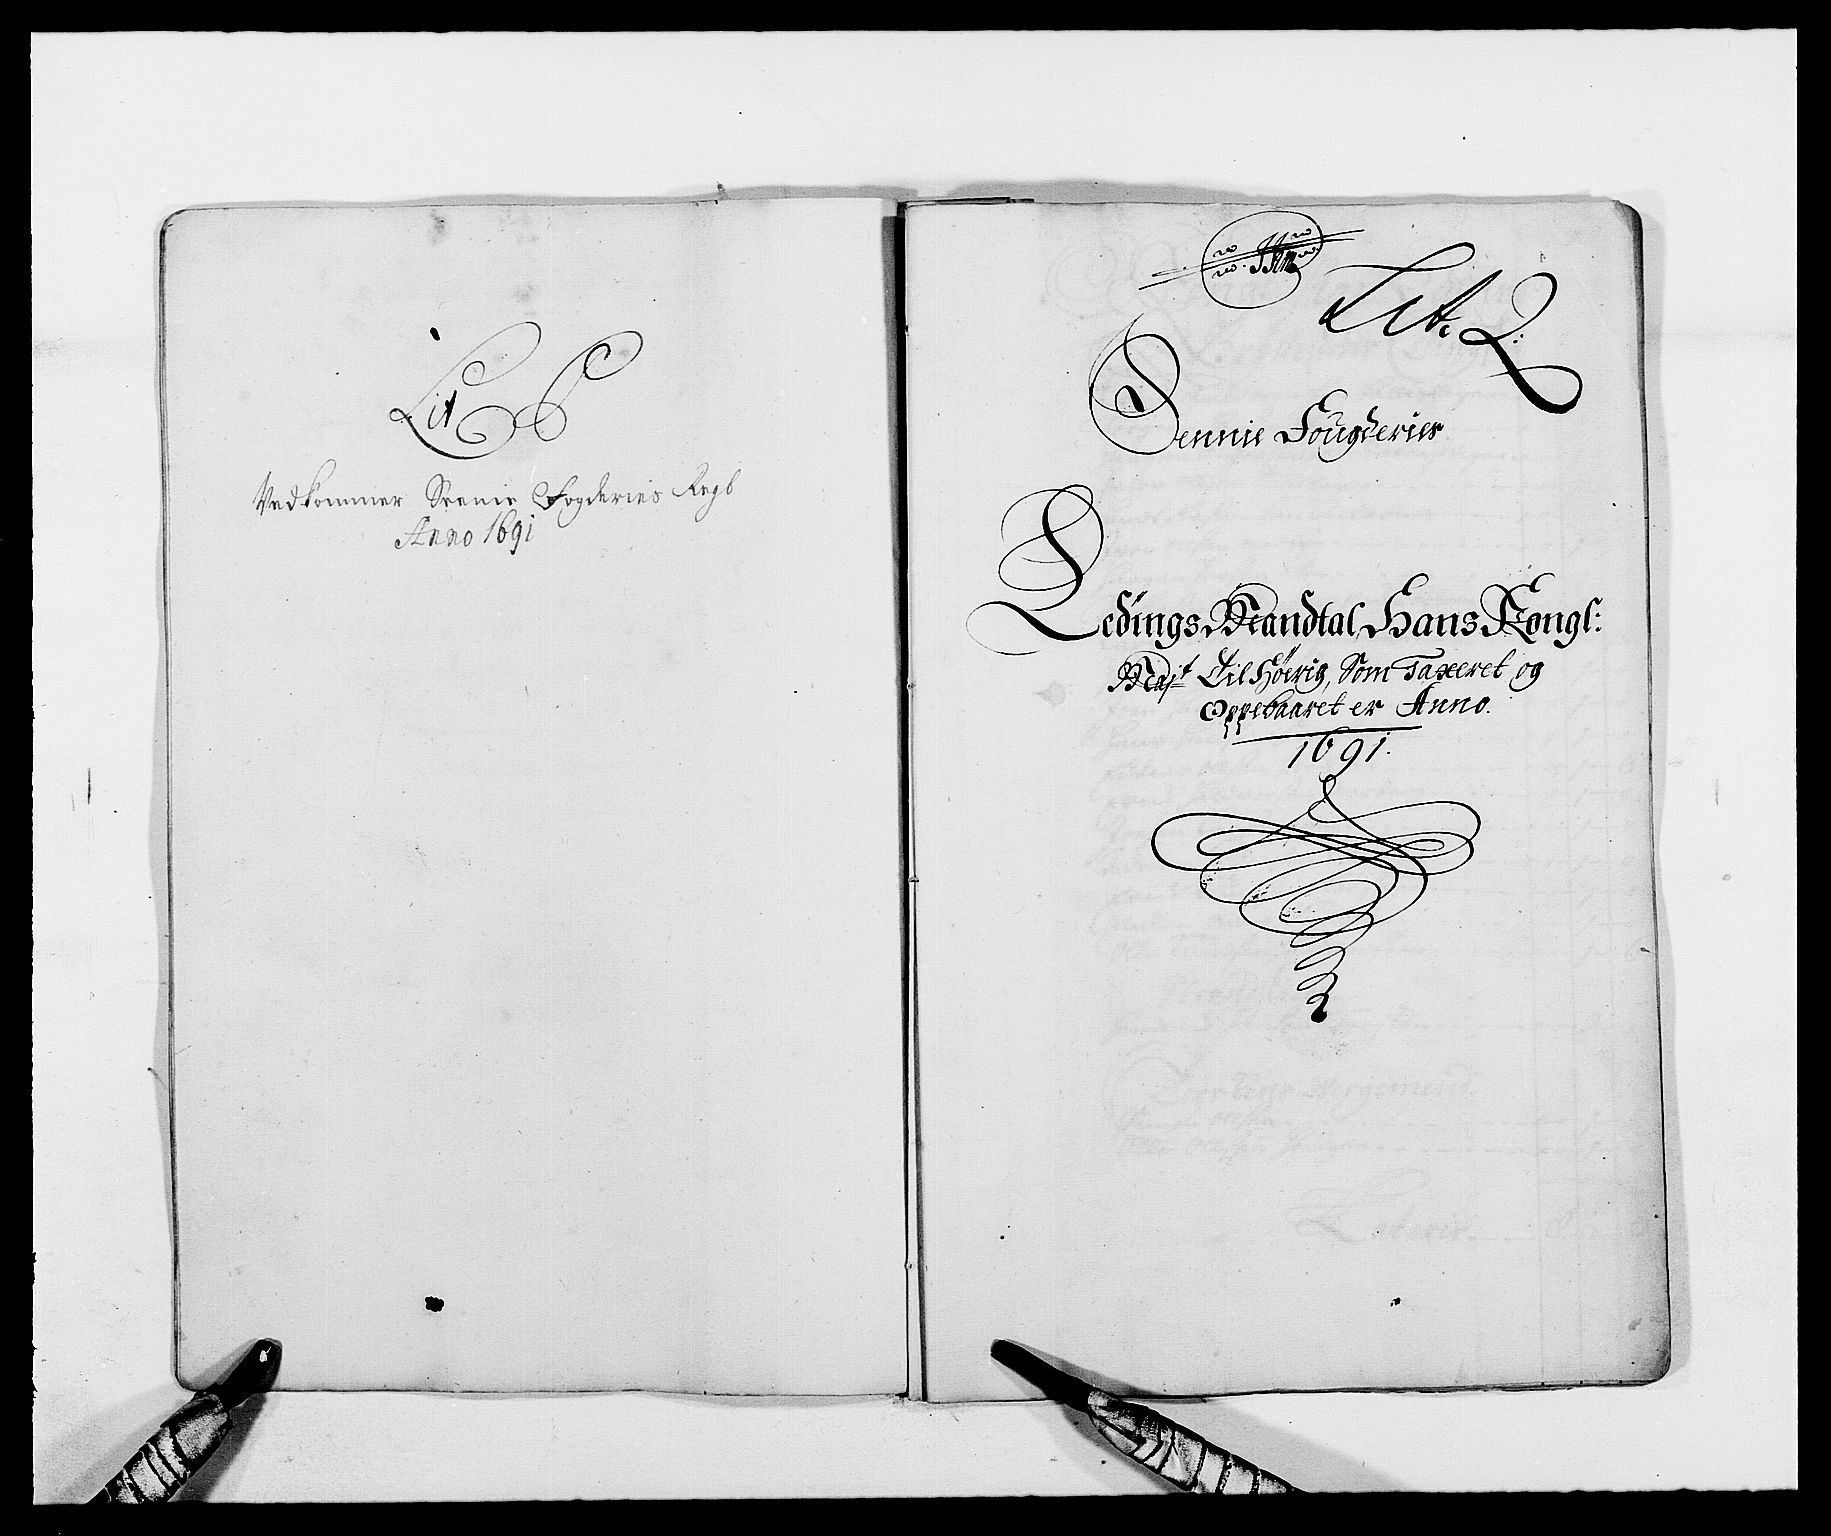 Lit P
Vedkommer Sennie Fogderies Regb
Anno 1691
Lit. Q:
Sennie Fougderies
Ledings Mandtal, Hans Kongl:
Mayt Til Høerig, Som Taxeret og
Oppebaaret er Anno.
1691.